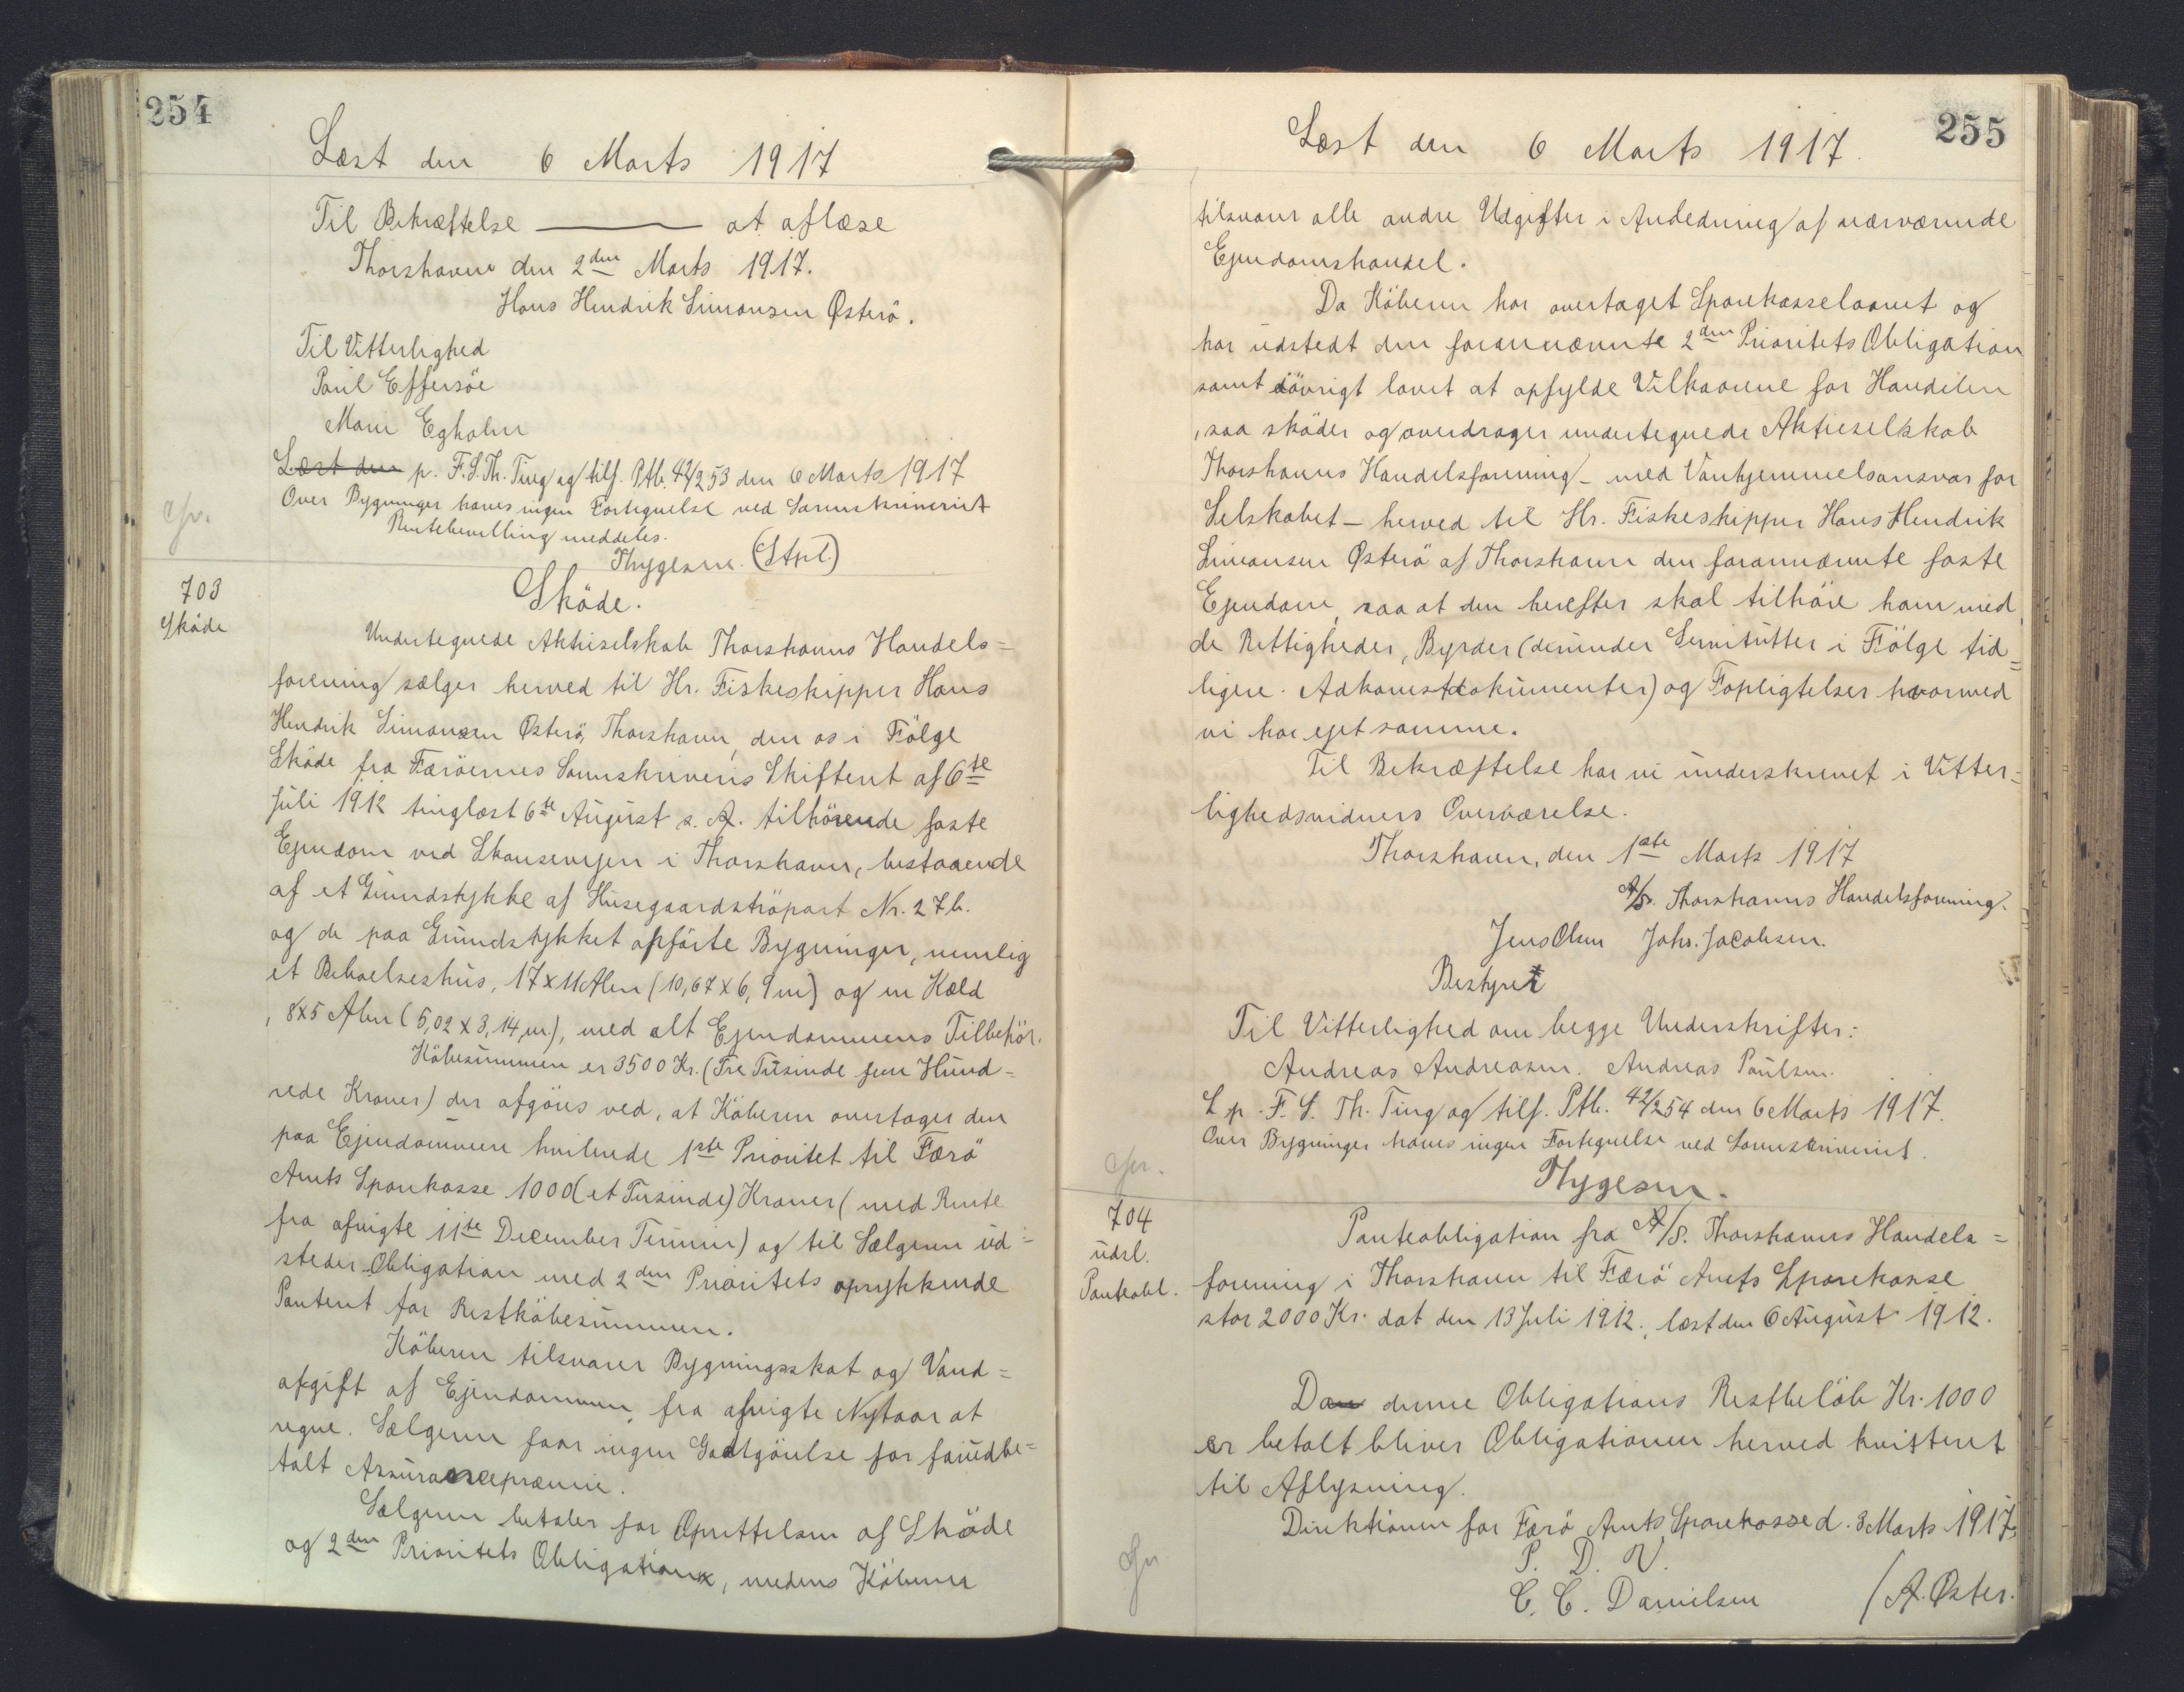 254
Læst den 6 Marts 1917
Til Bekræftelse ——— at aflæse
Thorshavn den 2den Marts 1917.
Hans Hendrik Simonsen Østerö.
Til Vitterlighed
Poul Effersöe
Marie Egholm
Læst den p. F.S.Th. Ting og tilf. Ptb. 42/253 den 6 Marts 1917
Over Bygninger haves ingen Fortegnelse ved Sorenskriveriet
Rentebevilling meddeles.
Thygesen. (Stpl.)
703
Sköde
Sköde.
Undertegnede Aktieselskab Thorshavns Handels=
forening sælger herved til Hr. Fiskeskipper Hans
Hendrik Simonsen Österö, Thorshavn, den os i Fölge
Sköde fra Færöernes Sorenskrivers Skifteret af 6te
Juli 1912 tinglæst 6te August s. A. tilhörende faste
Ejendom ved Skansevejen i Thorshavn, bestaaende
af et Grundstykke af Husegaardströpart Nr. 27b.
og de paa Grundstykket opförte Bygninger, nemlig
et Beboelseshus, 17x11 Alen (10,67x6,9m) og en Kæld
, 8x5 Alen (5,02x3,14,m.), med alt Ejendommens Tilbehör.
Köbesummen er 3500 Kr. (Tre Tusinde fem Hund=
rede Kroner) der afgöres ved, at Köberen overtager den
paa Ejendommen hvilende 1ste Prioritet til Færö
Amts Sparekasse 1000 (et Tusinde) Kroner (med Rente
fra afvigte 11te December Termin) og til Sælgeren ud=
steder Obligation med 2den Prioritets oprykkende
Panteret for Restköbesummen.
Köberen tilsvarer Bygningsskat og Vand=
afgift af Ejendommen, fra afvigte Nytaar at
regne. Sælgeren faar ingen Godtgörelse for forudbe=
talt Assurancepræmie.
Sælgeren betaler for Oprettelsen af Sköde
og 2den Prioritets Obligation, medens Köberen
255
Læst den 6 Marts 1917.
tilsvarer alle andre Udgifter i Anledning af nærværende
Ejendomshandel.
Da Köberen har overtaget Sparekasselaanet og
har udstedt den forannævnte 2den Prioritets Obligation
samt iövrigt lovet at opfylde Vilkaarene for Handelen
, saa sköder og overdrager undertegnede Aktieselskab
Thorshavns Handelsforening – med Vanhjemmelsansvar for
Selskabet – herved til Hr. Fiskeskipper Hans Hendrik
Simonsen Østerö af Thorshavn den forannævnte faste
Ejendom, saa at den herefter skal tilhöre ham med
de Rettigheder, Byrder (derunder Servitutter i Fölge tid=
ligere Adkomstdokumenter) og Fopligtelser hvormed
vi har ejet samme.
Til Bekræftelse har vi underskrevet i Vitter=
lighedsvidners Overværelse.
Thorshavn, den 1ste Marts 1917
A/S. Thorshavns Handelsforening.
Jens Olsen Johs. Jacobsen.
Bestyret
Til Vitterlighed om begge Underskrifter:
Andreas Andreasen. Andreas Poulsen.
L. p. F. S. Th. Ting og tilf. Ptb. 42/254 den 6 Marts 1917.
Over Bygninger haves ingen Fortegnelse ved Sorenskriveriet.
Thygesen.
704
udsl.
Panteobl.
Panteobligation fra A/S. Thorshavns Handels=
forening i Thorshavn til Færö Amts Sparekasse
stor 2000 Kr. dat den 13 Juli 1912., læst den 6 August 1912.
Da denne Obligations Restbelöb Kr. 1000
er betalt bliver Obligationen herved kvitteret
til Aflysning.
Direktionen for Færö Amts Sparekasse d. 3 Marts 1917,
P. D. V.
C. C. Danielsen /A. Øster.